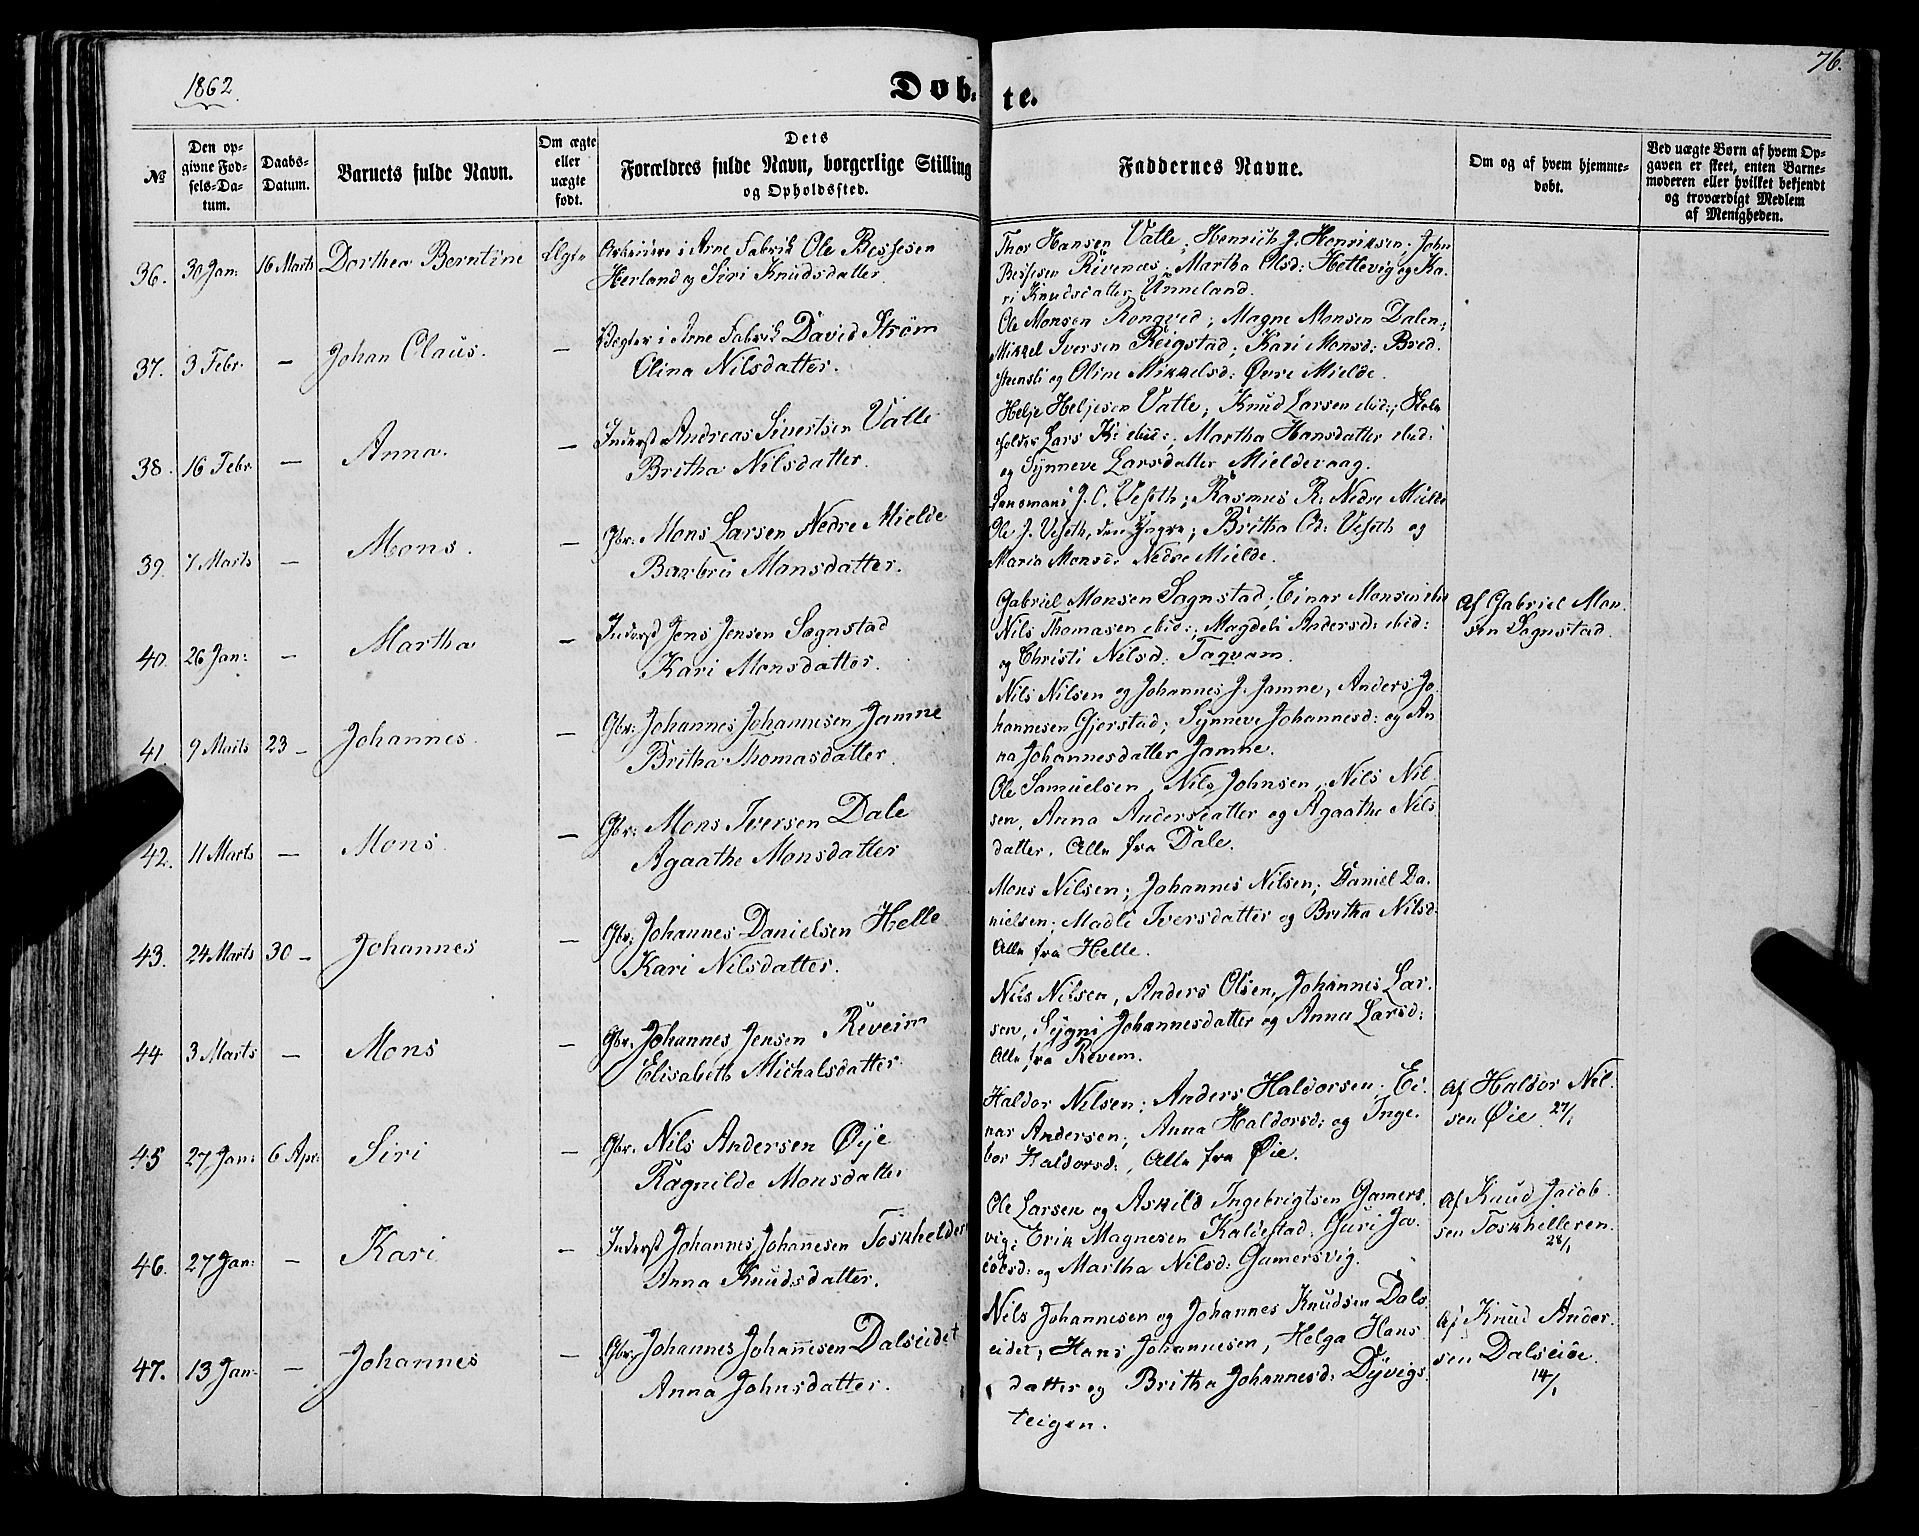 1862.
76.
Døb- te.
№
Den op-
givne Fød-
sels-Da-
tum.
Daabs-
Datum.
Barnets fulde Navn.
Om ægte
eller
uægte
født.
Dets
Forældres fulde Navn, borgerlige Stilling
og Opholdssted.
Faddernes Navne.
Om og af hvem hjemme-
døbt.
Ved uægte Børn af hvem Op-
gaven er skeet, enten Barne-
moderen eller hvilket bekjendt
og troværdigt Medlem
af Menigheden.
36. 30 Jan: 16 Marts Dorthea Berntine Ægte
Arbeidere i Arne Fabrik Ole Bessesen
Herland og Siri Knudsdatter.
Thor Hansen Vatle; Henrich J. Henriksen; John
Bessesen Rivenæs; Martha Olsd: Hettevig og Ka-
ri Knudsdatter Unneland.
37. 3 Febr. — Johan Claus. —
i Arne Fabrik David Strøm
Olina Nilsdatter.
Ole Monsen Rongved; Magne Monsen Dalen;
Mikkel Iversen Reigstad; Kari Monsd: Bred-
stensli og Oline Mikkelsd: Øvre Mielde.
38. 16 Febr. — Anna. —
Inderst Andreas Sivertsen Vatle
Britha Nilsdatter.
Helje Heljesen Vatle; Knud Larsen ibid:; Skole-
holder Lars K: ibid:; Martha Hansdatter ibid:
og Synneve Larsdatter Mieldevaag.
39. 7 Marts — Mons. —
Gbr: Mons Larsen Nedre Mielde
Barbru Monsdatter.
Lensmand J. C. Veseth; Rasmus R: Nedre Mielde
Ole J. Veseth, den Yngre; Britha Od: Veseth og
Maria Monsd: Nedre Mielde.
40. 26 Jan: — Martha —
Inderst Jens Jensen Sognstad
Kari Monsdatter.
Gabriel Monsen Sognstad; Einar Monsen ibid
Nils Thomasen ibid:; Magdeli Andersd: ibid:
og Christi Nilsd: Taqvam.
Af Gabriel Mon-
sen Sognstad.
41. 9 Marts 23 — Johannes. —
Gbr: Johannes Johannesen Jamne
Britha Thomasdatter.
Nils Nilsen og Johannes J. Jamne, Anders Jo-
hannesen Gjerstad; Synneve Johannesd: og An-
na Johannesdatter Jamne.
42. 11 Marts — Mons. —
Gbr: Mons Iversen Dale
Agaathe Monsdatter
Ole Samuelsen, Nils Johnsen, Nils Nil-
sen, Anna Andersdatter og Agaathe Nils-
datter. Alle fra Dale.
43. 24 Marts 30 — Johannes —
Gbr: Johannes Danielsen Helle
Kari Nilsdatter.
Mons Nilsen; Johannes Nilsen; Daniel Da-
nielsen; Madli Iversdatter og Britha Nilsd:
Alle fra Helle.
44 3 Marts — Mons —
Gbr. Johannes Jensen Reveim
Elisabeth Michalsdatter.
Nils Nilsen, Anders Olsen, Johannes Lar-
sen, Sygni Johannesdatter og Anna Larsd:
Alle fra Revem.
45 27 Jan: 6 Apr: Siri —
Gbr. Nils Andersen Øye
Ragnilde Monsdatter
Haldor Nilsen; Anders Haldorsen; Ei-
nar Andersen; Anna Haldorsd: og Inge-
bor Haldorsd:, Alle fra Øie.
Af Haldor Nil-
sen Øie. 27/1
46. 27 Jan: — Kari —
Inderst Johannes Johanesen Toskhelder
Anna Knudsdatter.
Ole Larsen og Askild Ingebrigtsen Gamers-
vig; Erik Magnesen Kaldestad; Guri Ja-
cobsd: og Martha Nilsd: Gamersvig.
Af Knud Jacob-
sen Toskhelleren.
28/1
47. 13 Jan- — Johannes —
Gbr. Johannes Johannesen Dalseidet
Anna Johnsdatter.
Nils Johannesen og Johannes Knudsen Dals-
eidet, Hans Johannesen, Helga Hans-
datter og Britha Johannesd: Dyvigs-
teigen.
Af Knud Ander-
sen Dalseide.
14/1